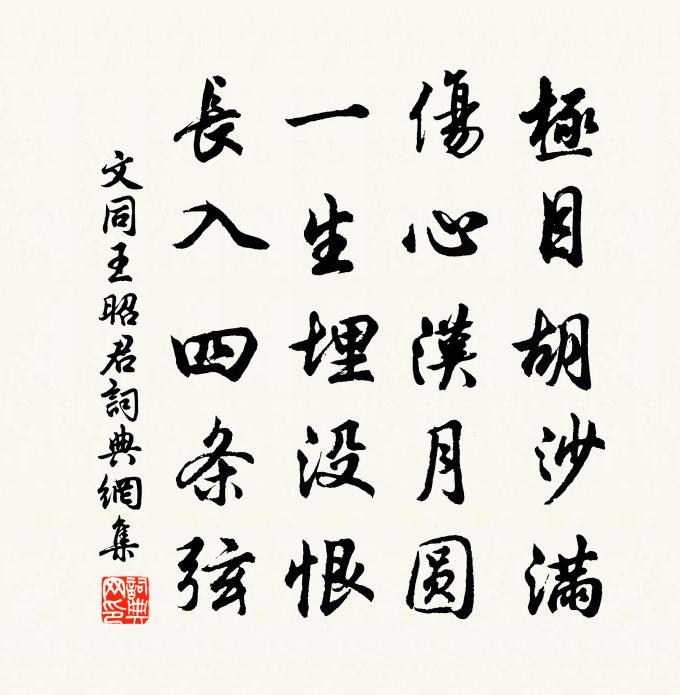 極目胡沙滿
傷心漢月圓
一生埋没恨
長入四条弦
文同王昭君詞典網集
詞典網印